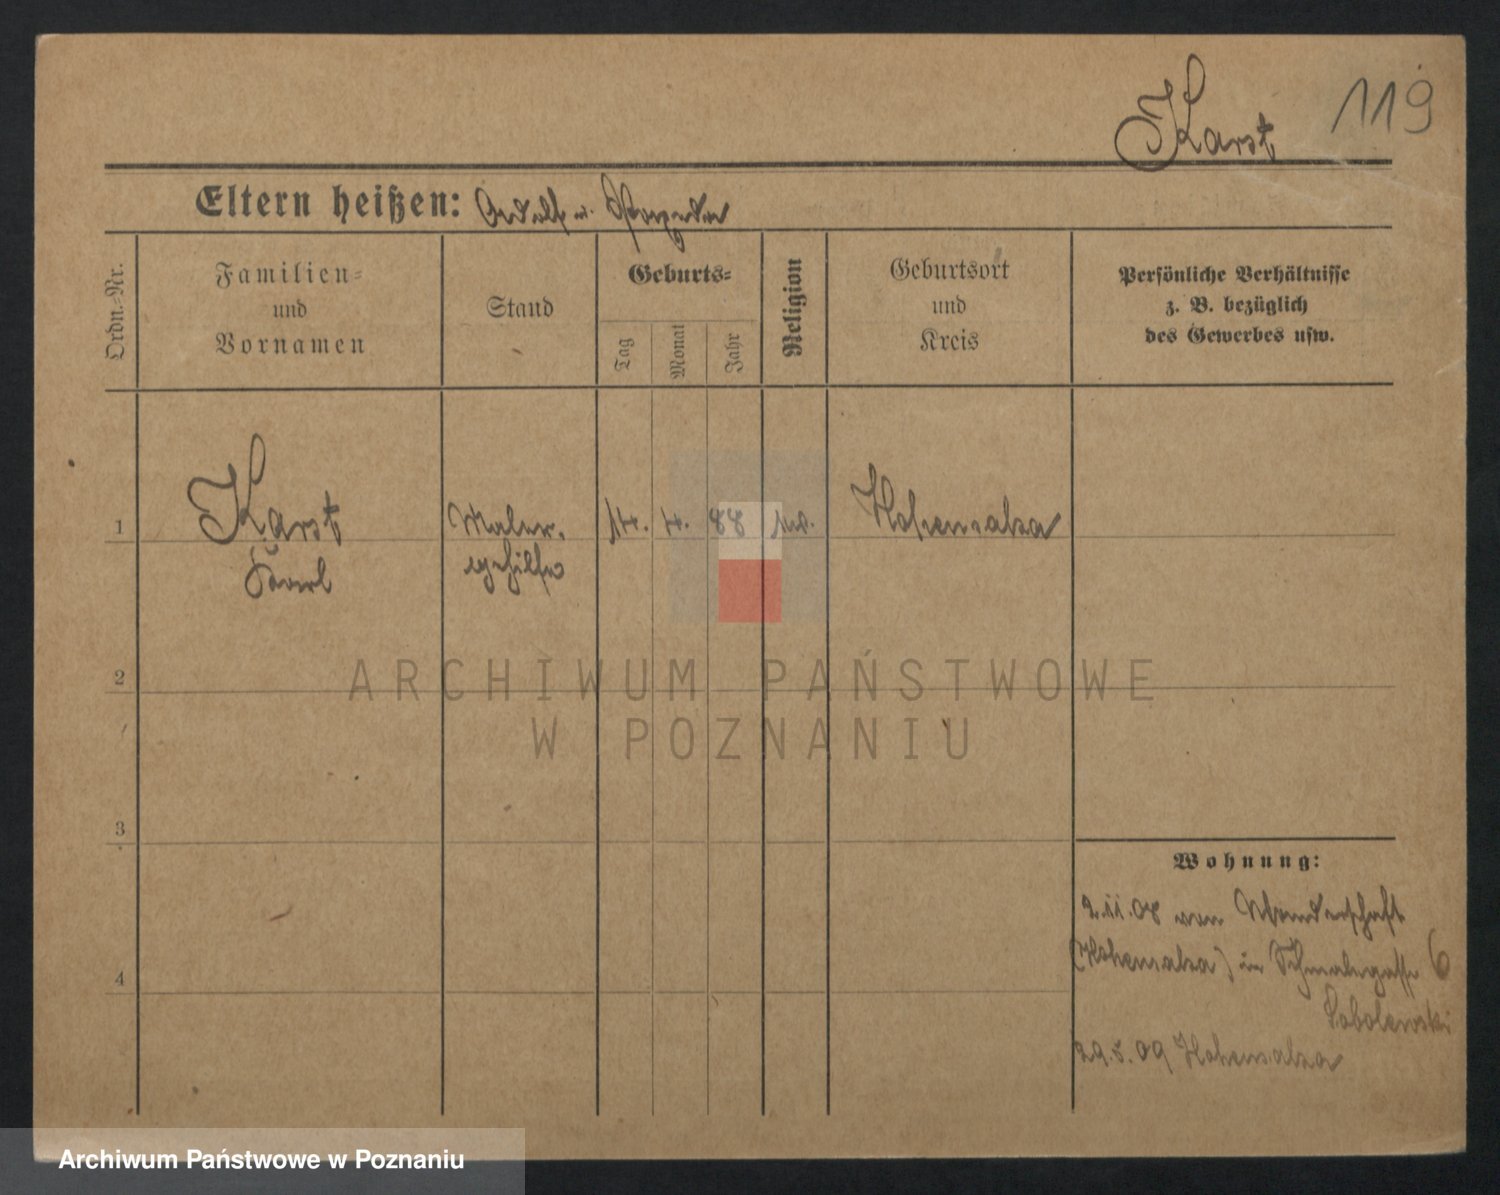 Karst 119
Eltern heißen: Adolf u.
Ordn.-Nr.
Familien-
und
Vornamen
Stand
Geburts-
Tag
Monat
Jahr
Religion
Geburtsort
und
Kreis
Persönliche Verhältnisse
z. B. bezüglich
des Gewerbes usw.
1 Karst Maler- 14. 4. 88 Hohensalza
Karl gehilfe
2
ARCHIWUM PAŃSTWOWE
W POZNANIU
3
Wohnung:
2.11.08 von Wanderschaft
(Hohensalza) in 6
Sobolewski
4
29.5.09 Hohensalza
Archiwum Państwowe w Poznaniu